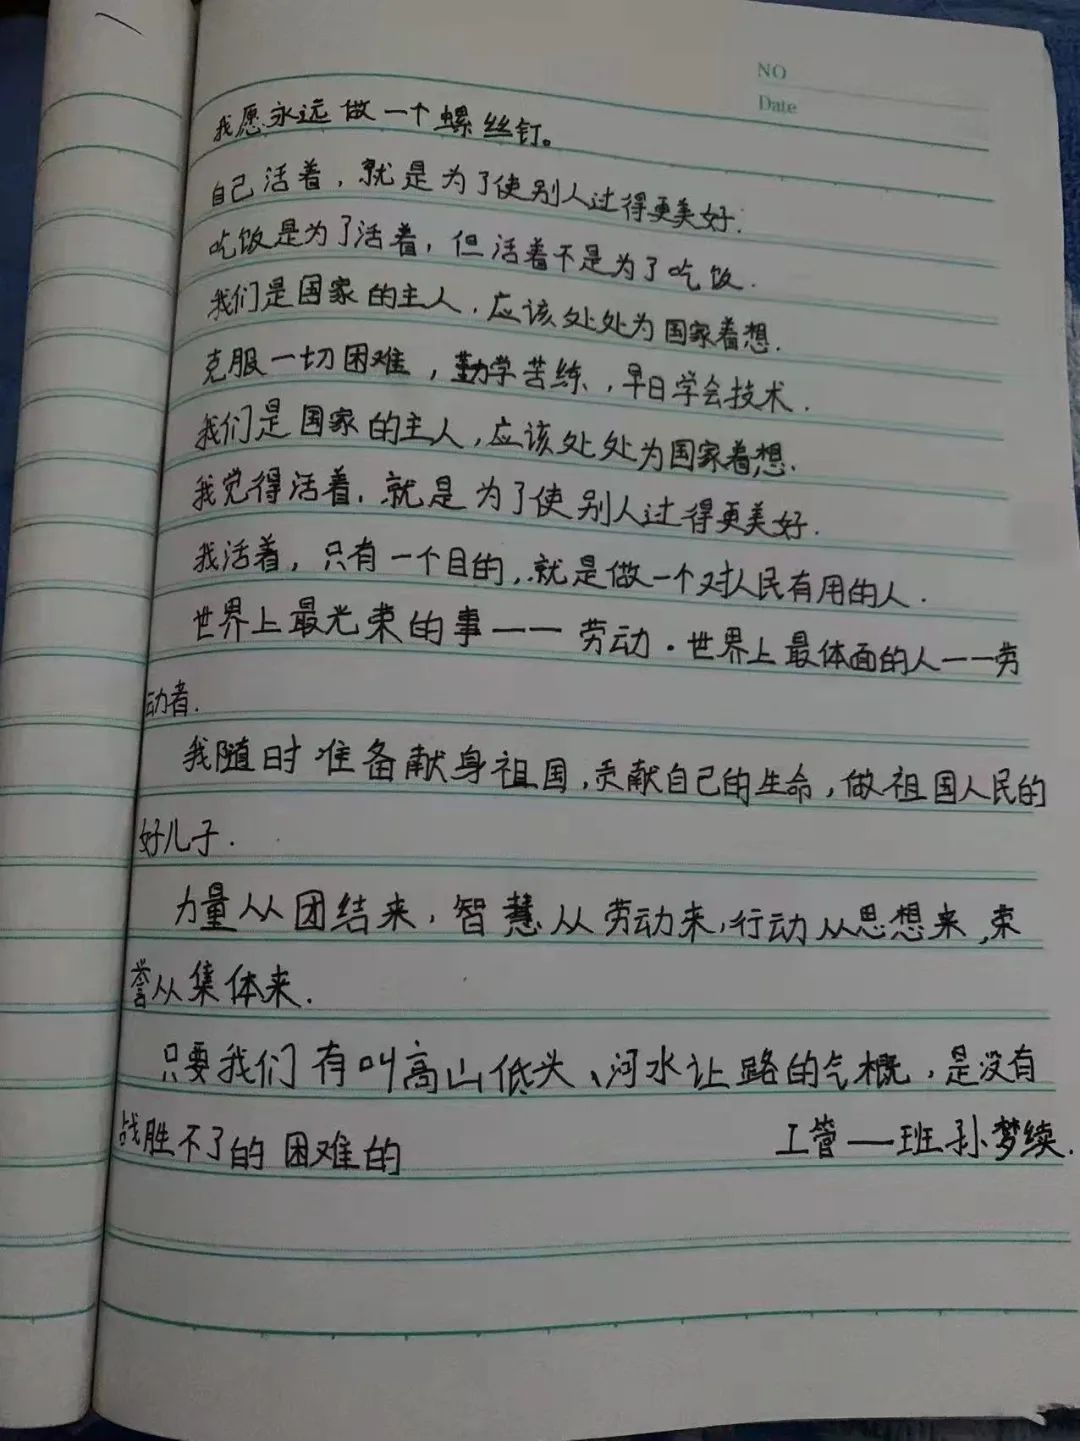 NO
Date
我愿永远做一个螺丝钉。
自己活着，就是为了使别人过得更美好.
吃饭是为了活着，但活着不是为了吃饭.
我们是国家的主人，应该处处为国家着想.
克服一切困难，勤学苦练，早日学会技术.
我们是国家的主人，应该处处为国家着想.
我觉得活着，就是为了使别人过得更美好.
我活着，只有一个目的，就是做一个对人民有用的人.
世界上最光荣的事——劳动.世界上最体面的人——劳
动者.
我随时准备献身祖国，贡献自己的生命，做祖国人民的
好儿子.
力量从团结来，智慧从劳动来，行动从思想来，荣
誉从集体来.
只要我们有叫高山低头、河水让路的气概，是没有
战胜不了的困难的
工管一班孙梦续.